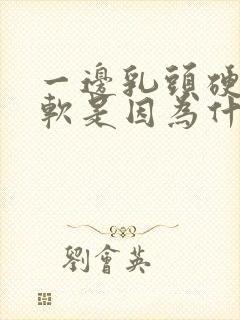 一邊乳頭硬
軟是因為什
劉會英